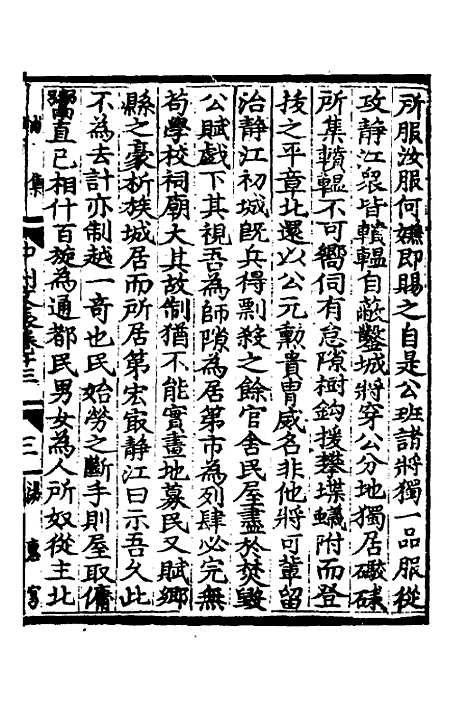 所服汝服何嫌即賜之自是公班諸將獨一品服從
攻靜江衆皆轒轀自蔽鑿城將穿公分地獨居礮碌
所集轒轀不可嚮伺有怠隙樹鈎援攀堞蟻附而登
拔之平章北還以公元勳貴胄威名非他將可輩留
治靜江初城旣兵得剽殺之餘官舍民屋盡於焚毀
公賦戲下其視吾為師隙為居第市為列肆必完無
苟學校祠廟大其故制猶不能實畫地募民又賦鄉
縣之豪析族城居而所居第宏㝡靜江曰示吾久此
不為去計亦制越一奇也民始勞之斷手則屋取傭
鬻直已相什百旋為通都民男女為人所奴從主北